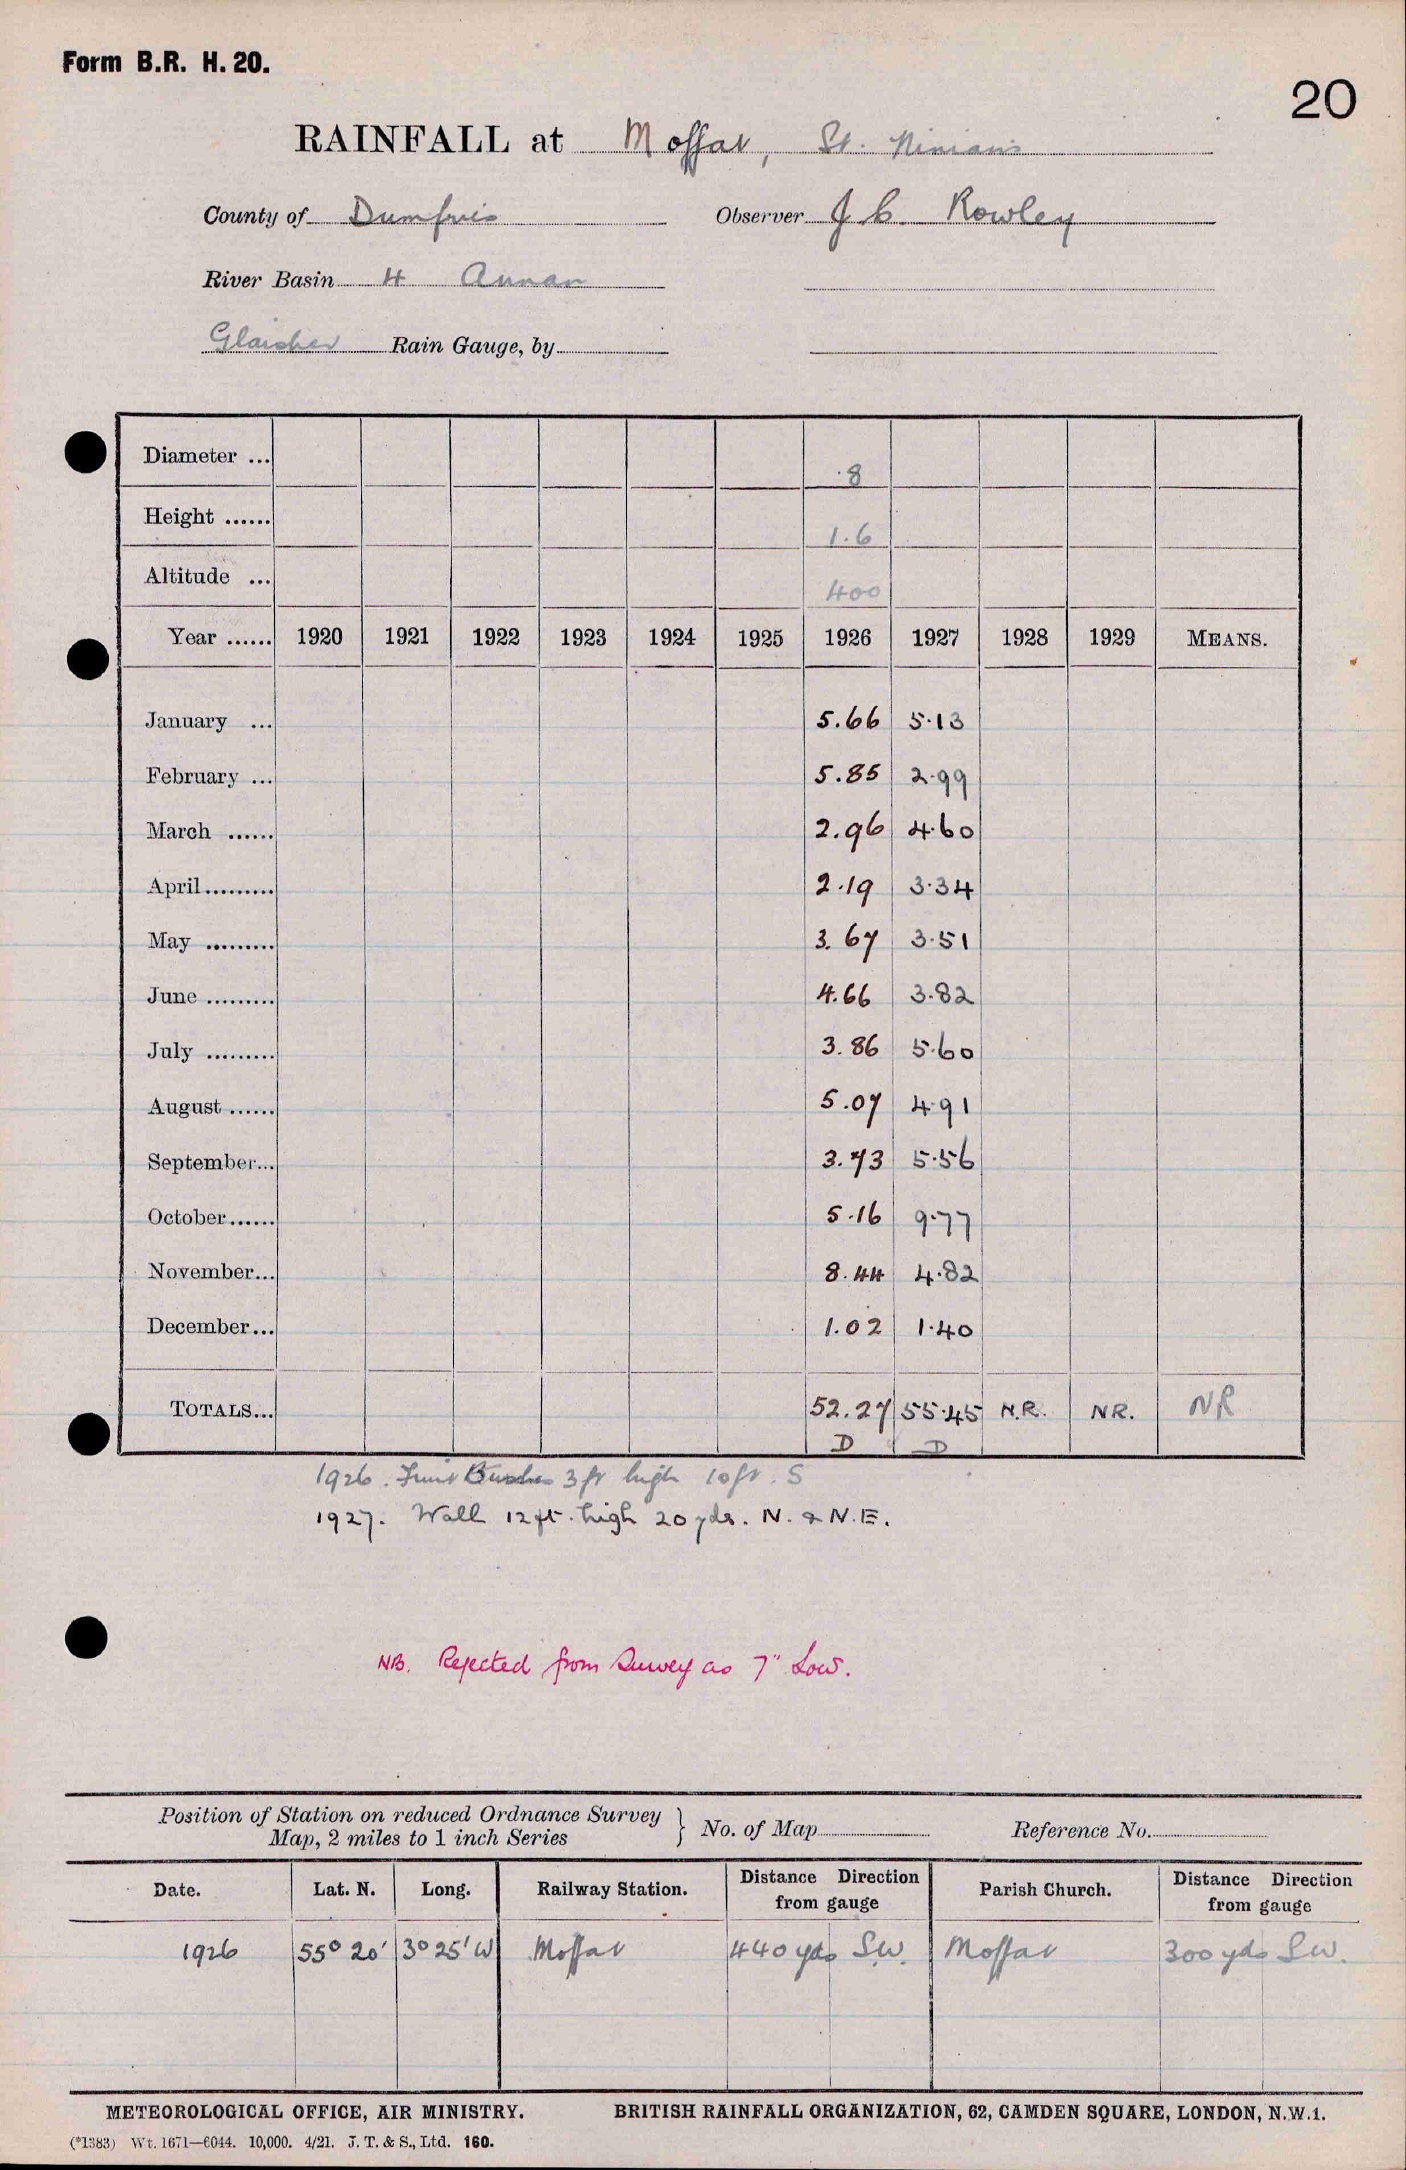 Form B.R. H. 20.
20
RAINFALL at Moffat, St. Ninians
County of Dumfries Observer J C Rowley
River Basin 4 Annan
Glaisher Rain Gauge, by
Diameter ... 8
Height ...... 1.6
Altitude ... 400
Year ...... 1920 1921 1922 1923 1924 1925 1926 1927 1928 1929 MEANS.
January ... 5.66 5.13
February ... 5.85 2.99
March ...... 2.96 4.60
April......... 2.19 3.34
May ......... 3.67 3.51
June ......... 4.66 3.82
July ......... 3.86 5.60
August ...... 5.07 4.91
September... 3.73 5.56
October...... 5.16 9.77
November... 8.44 4.82
December... 1.02 1.40
TOTALS... 52.27 55.45 N.R. NR. NR
D D
1926. Fruit Bushes 3 ft high 10 ft. S
1927. Wall 12 ft. high 20 yds. N. & N.E.
NB. Rejected from Survey as 7" Low.
Position of Station on reduced Ordnance Survey
Map, 2 miles to 1 inch Series } No. of Map Reference No.
Date. Lat. N. Long. Railway Station. Distance Direction from gauge Parish Church. Distance Direction from gauge
1926 55° 20' 3° 25' W Moffat 440 yds S.W. Moffat 300 yds S.W.
METEOROLOGICAL OFFICE, AIR MINISTRY. BRITISH RAINFALL ORGANIZATION, 62, CAMDEN SQUARE, LONDON, N.W.1.
(*1383) Wt. 1671—6044. 10,000. 4/21. J. T. & S., Ltd. 160.